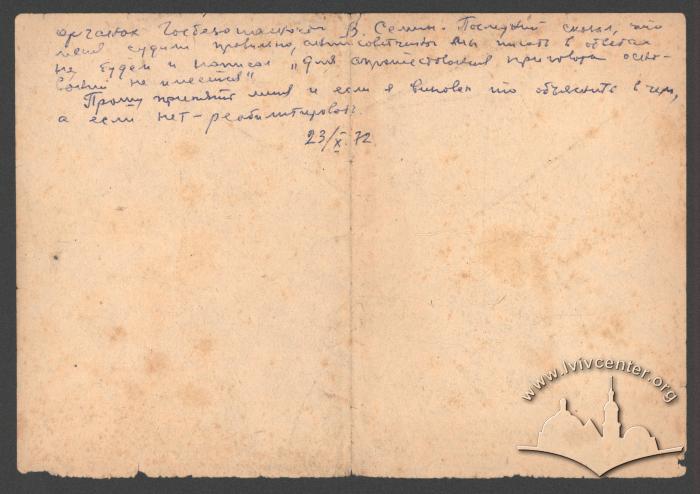 органах Госбезопасности В. Семин. Последний сказал, что
меня судили правильно, антисоветчины мы писать в ответах
не будем и написал "для опротестования приговора осно-
ваний не имеется".
Прошу принять меня и если я виновен то объяснить в чем,
а если нет - реабилитировать.
23/X.72
www.lvivcenter.org